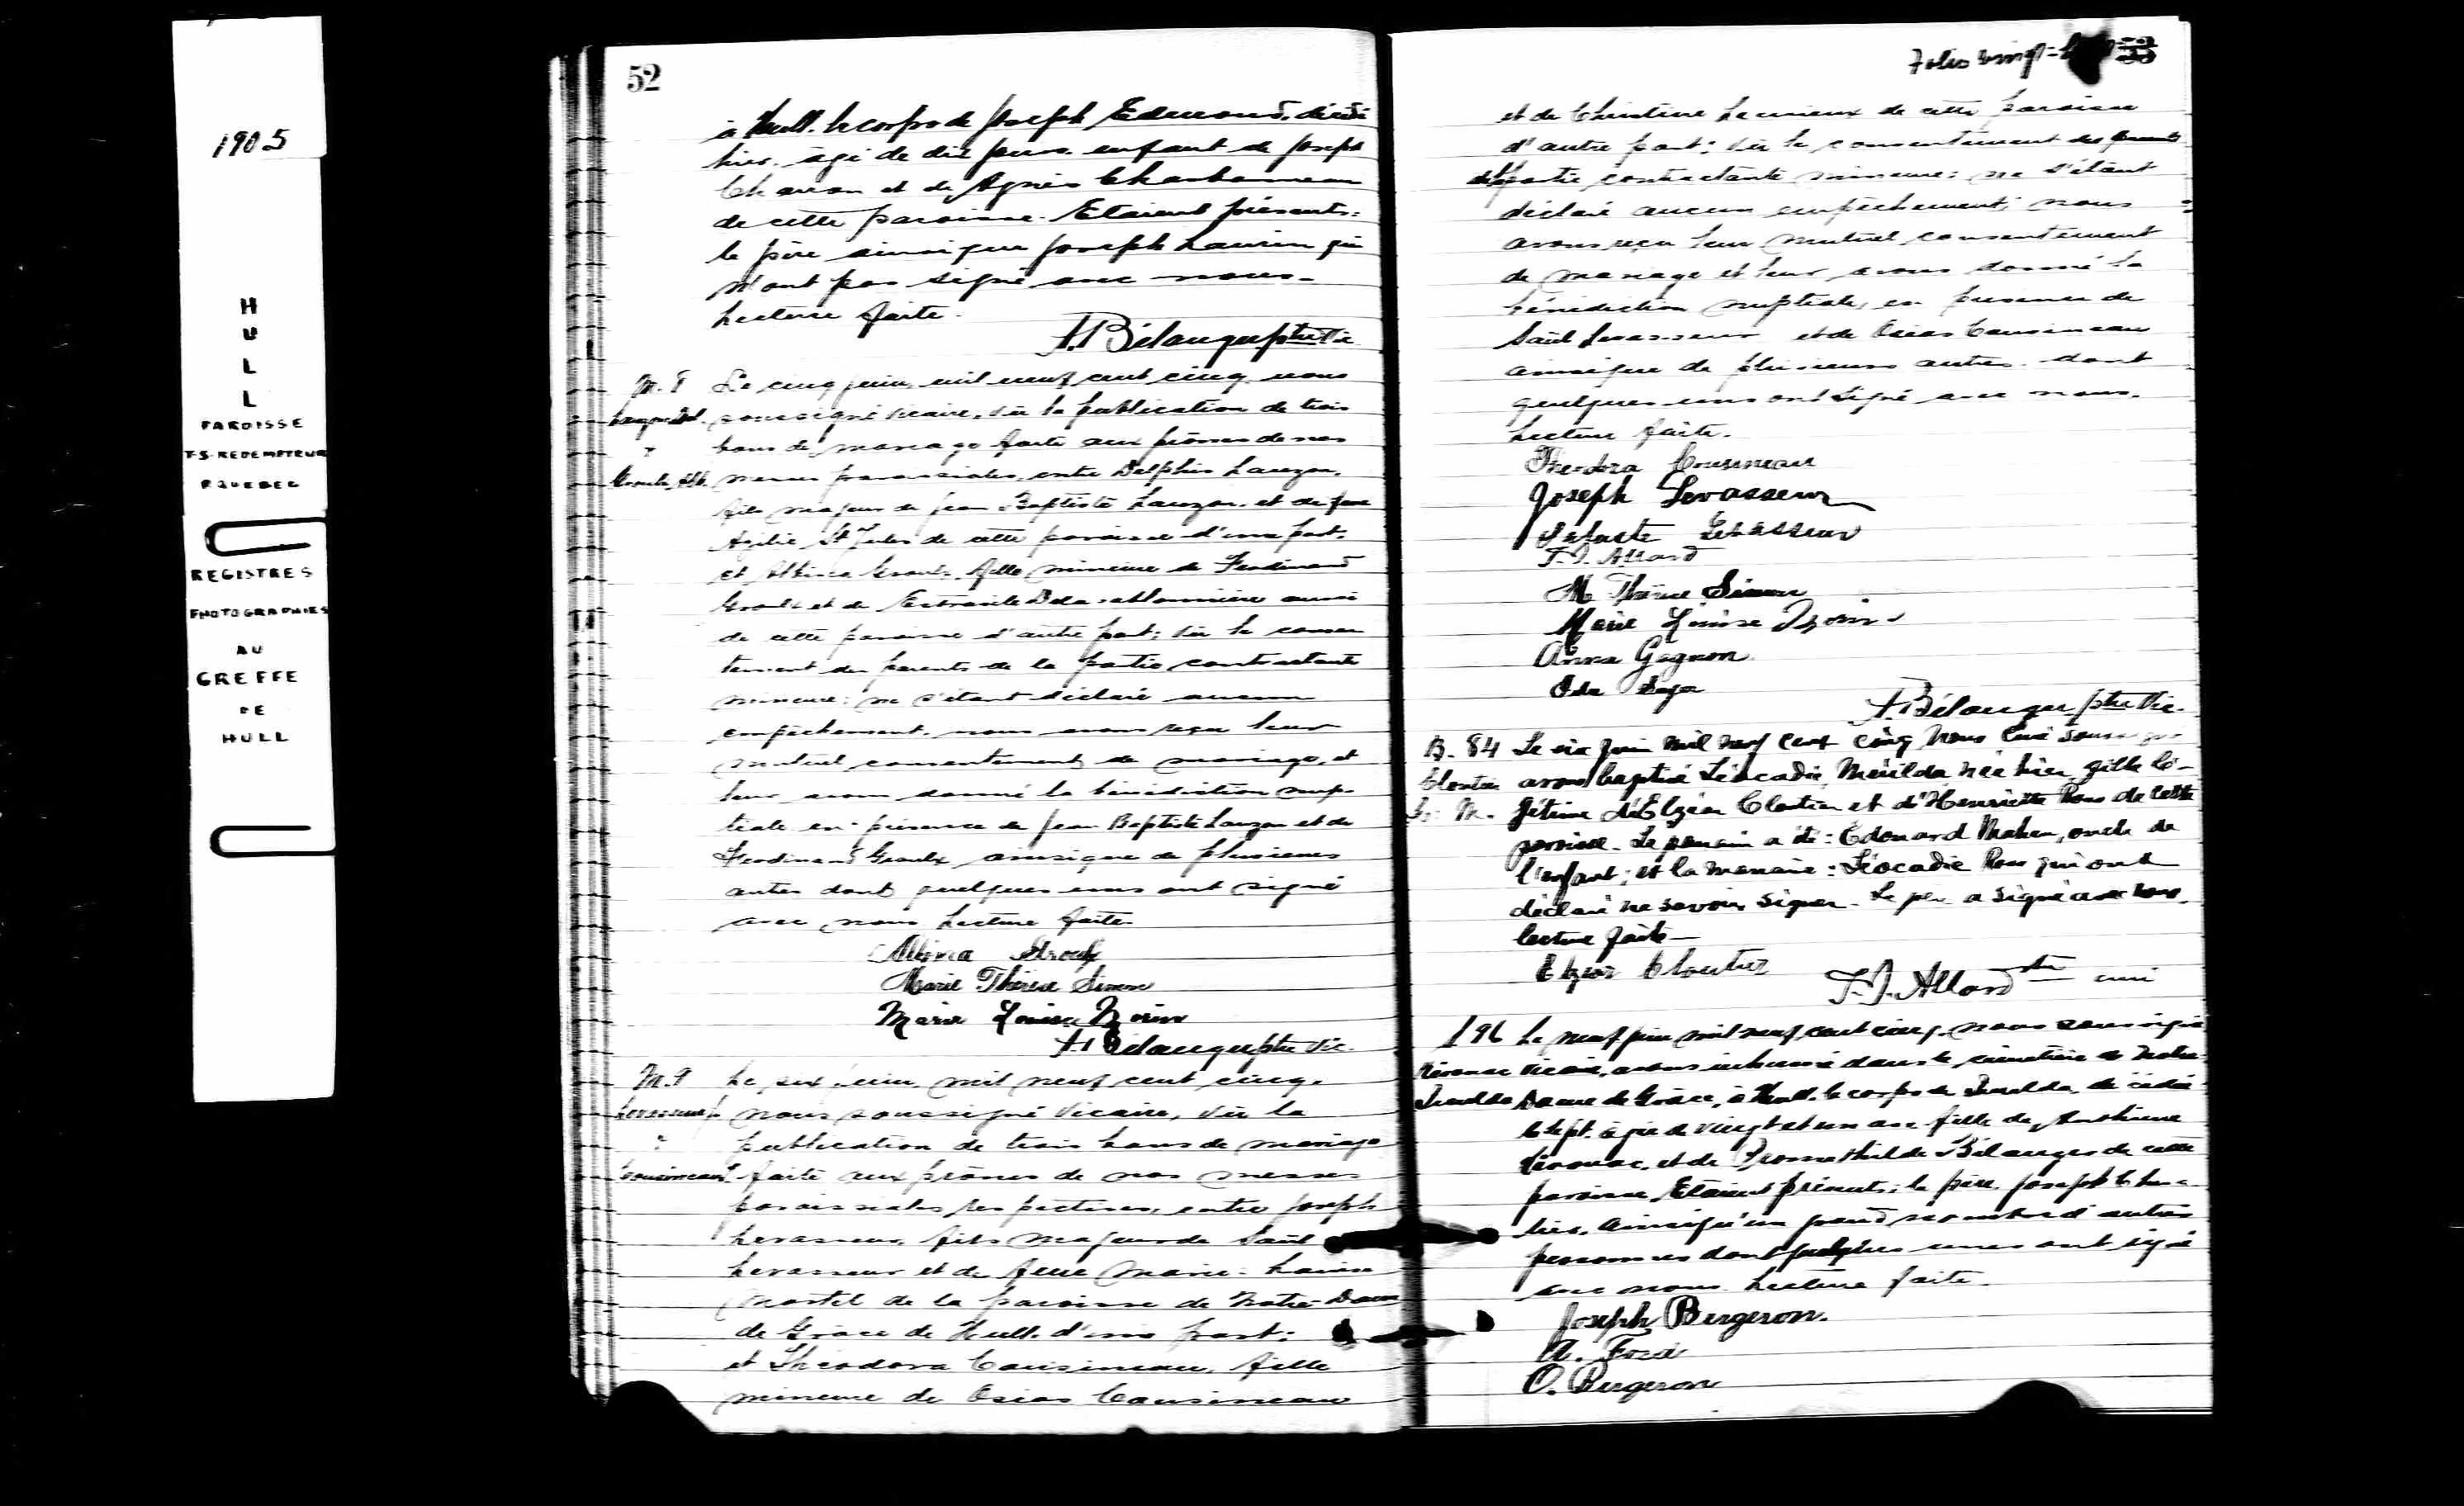 1905
H
U
L
L
PAROISSE
T-S-REDEMPTEUR
P. QUEBEC
REGISTRES
PHOTOGRAPHIES
AU
GREFFE
DE
HULL
52
à Hull. le corps de Joseph Edmond, décédé
hier, âgé de dix jours enfant de Joseph
et de Agnès Charbonneau
de cette paroisse. Etaient présents:
le père ainsi que Joseph Laurin qui
n'ont pas signé avec nous.
Lecture faite.
A. Bélanger ptre Vic.
M. 8 Le cinq juin mil neuf cent cinq nous
soussigné vicaire, vû la publication de trois
bans de mariage faite aux prônes de nos
messes paroissiales, entre Delphis Lauzon,
fils majeur de Jean Baptiste Lauzon, et de feue
Azilie St Jules de cette paroisse d'une part,
et Albina Groulx, fille mineure de Ferdinand
Groulx et de aussi
de cette paroisse d'autre part; vû le consen
tement des parents de la partie contractante
mineure; ne s'étant déclaré aucun
empêchement, nous avons reçu leur
mutuel consentement de mariage, et
leur avons donné la bénédiction nup-
tiale en présence de Jean Baptiste Lauzon et de
Ferdinand Groulx ainsi que de plusieurs
autres dont quelques uns ont signé
avec nous Lecture faite.
Albina Groulx
Marie Thérèse Simon
Marie Louise Morin
A. Bélanger ptre Vic.
M. 9 Le six juin mil neuf cent cinq,
Levasseur J. nous soussigné Vicaire, vû la
publication de trois bans de mariage
Cousineau T. faite aux prônes de nos messes
paroissiales respectives, entre Joseph
Levasseur, fils majeur de Saül
Levasseur et de feue Marie-Louise
Martel de la paroisse de Notre-Dame
de Grâce de Hull, d'une part;
et Théodora Cousineau, fille
mineure de Osias Cousineau
Folio vingt-
53
et de Christine Lemieux de cette paroisse
d'autre part; vû le consentement des parents
de la partie contractante mineure; ne s'étant
déclaré aucun empêchement; nous
avons reçu leur mutuel consentement
de mariage et leur avons donné la
bénédiction nuptiale, en présence de
Saül Levasseur et de Osias Cousineau
ainsi que de plusieurs autres dont
quelques uns ont signé avec nous.
Lecture faite.
Theodora Cousineau
Joseph Levasseur
Levasseur
Allard
M Thérèse Simon
Marie Louise Morin
Anna Gagnon
A. Bélanger ptre Vic.
B. 84 Le six juin mil neuf cent cinq Nous Curé
Cloutier avons baptisé Léocadie, née hier, fille lé-
L. M. gitime d'Elzéar Cloutier et d'Henriette de cette
paroisse. Le parrain a été: Edouard oncle de
l'enfant; et la marraine: Léocadie qui ont
déclaré ne savoir signer. Le père a signé avec nous.
lecture faite—
Elzéar Cloutier
Allard ptre curé
Le neuf juin mil neuf cent cinq, nous soussigné
vicaire, avons inhumé dans le cimetière de Notre-
Dame de Grâce, à Hull, le corps de décédée
le sept. âgée de vingt et un ans fille de
et de Bélanger de cette
paroisse, Etaient présents: le père, Joseph
ainsi qu'un grand nombre d'autres
personnes dont quelques unes ont signé
avec nous. Lecture faite.
Joseph Bergeron.
O. Bergeron